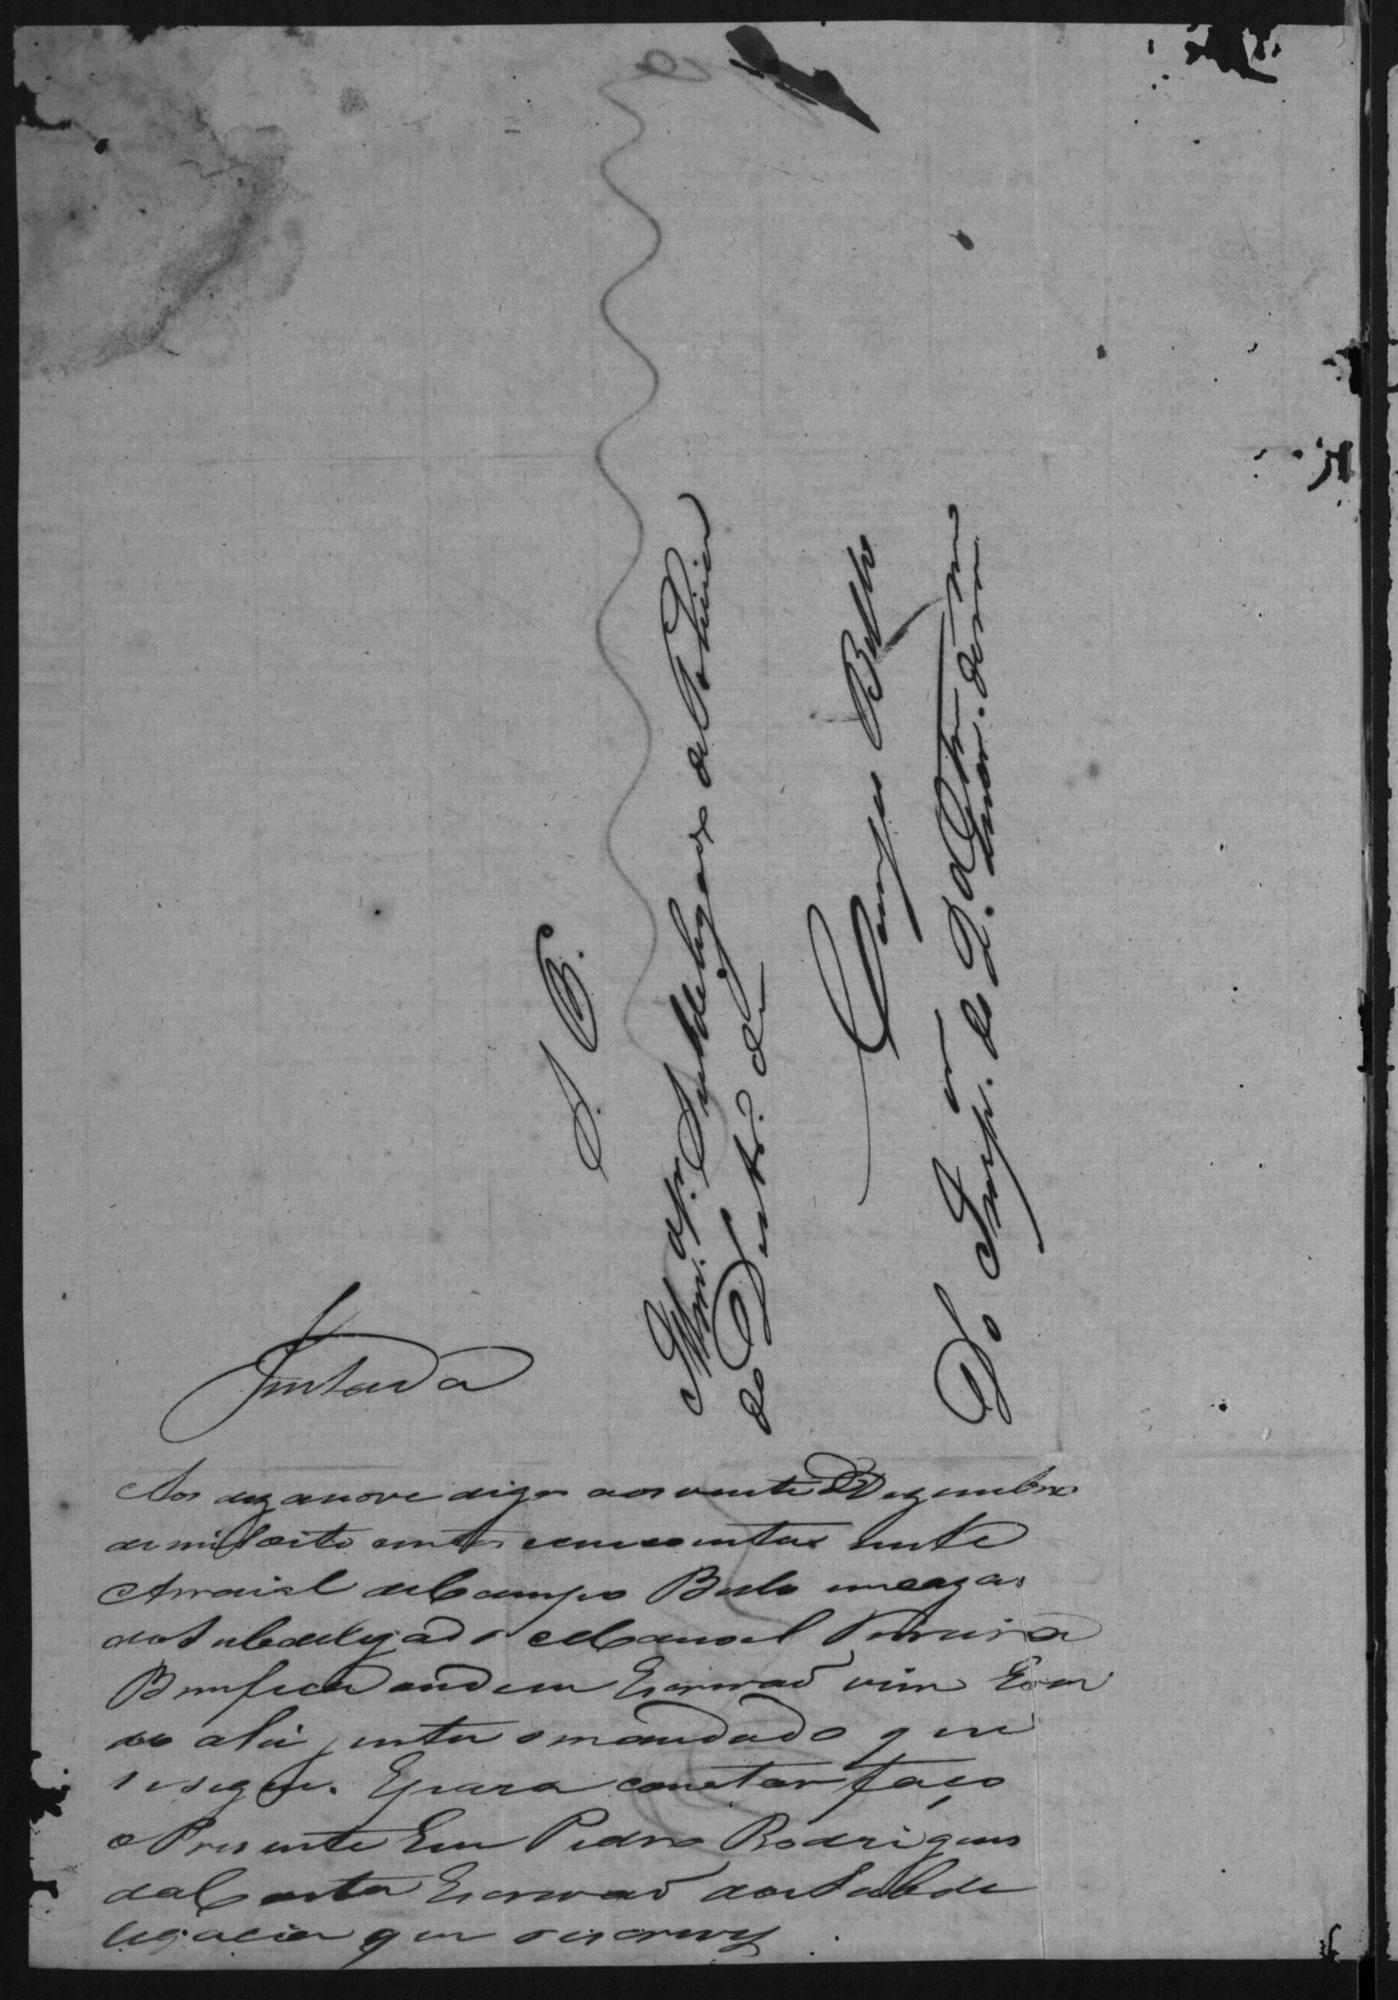 S. P.
Illmo. Snr. Subdelegado de Policia
do Distro. de
Campo Bello
Do Insp. do
Juntada
Aos dezanove digo aos vinte de Dezembro
de mil oito centos cincoenta neste
Arraial de Campo Bello em caza
do Subdelegado Manoel Ferreira
Bemfica onde eu Escrivaõ vim e sen
do ahi junto o mandado que
se segue. E para constar faço
o Presente Eu Pedro Rodrigues
da Costa Escrivaõ da Subde
legacia que o escrevy